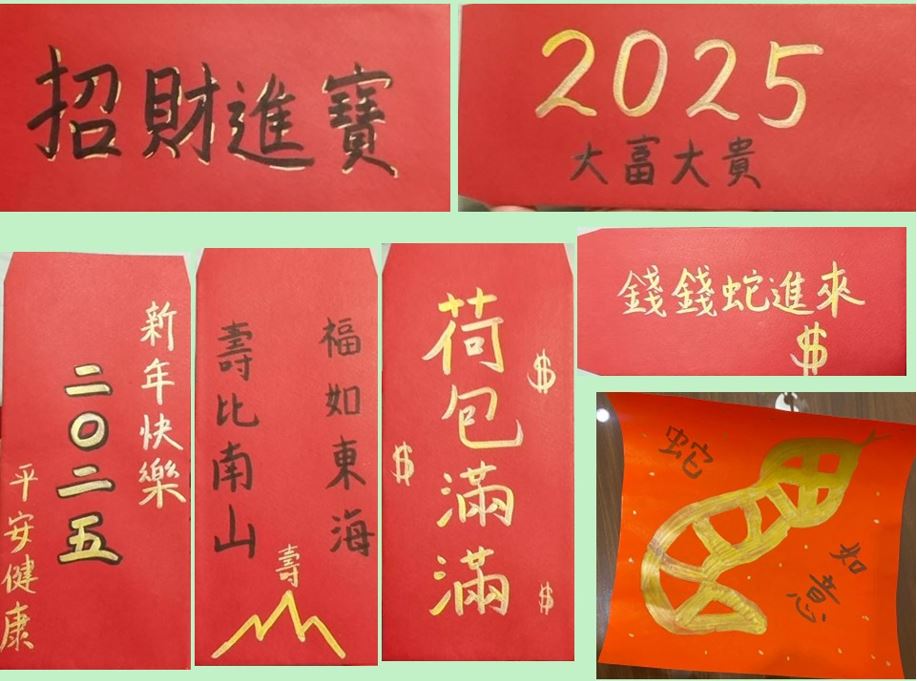 招財進寶
2025
大富大貴
新年快樂
二〇二五
平安健康
福如東海
壽比南山
壽
荷包滿滿
$
$
$
錢錢蛇進來
$
蛇
如意